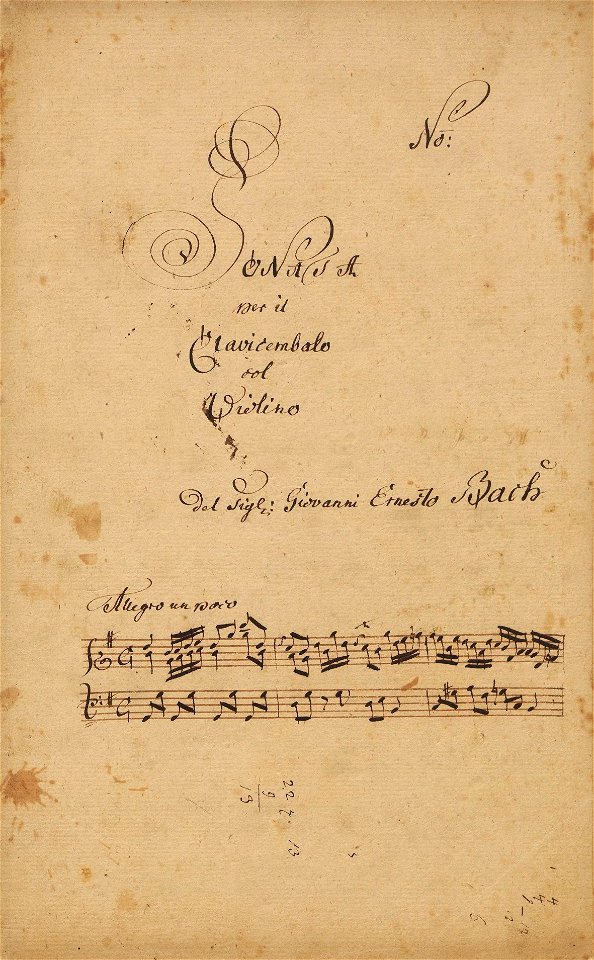 No:
SONATA
per il
Clavicembalo
col
Violino
Del Sigl: Giovanni Ernesto Bach
Allegro un poco